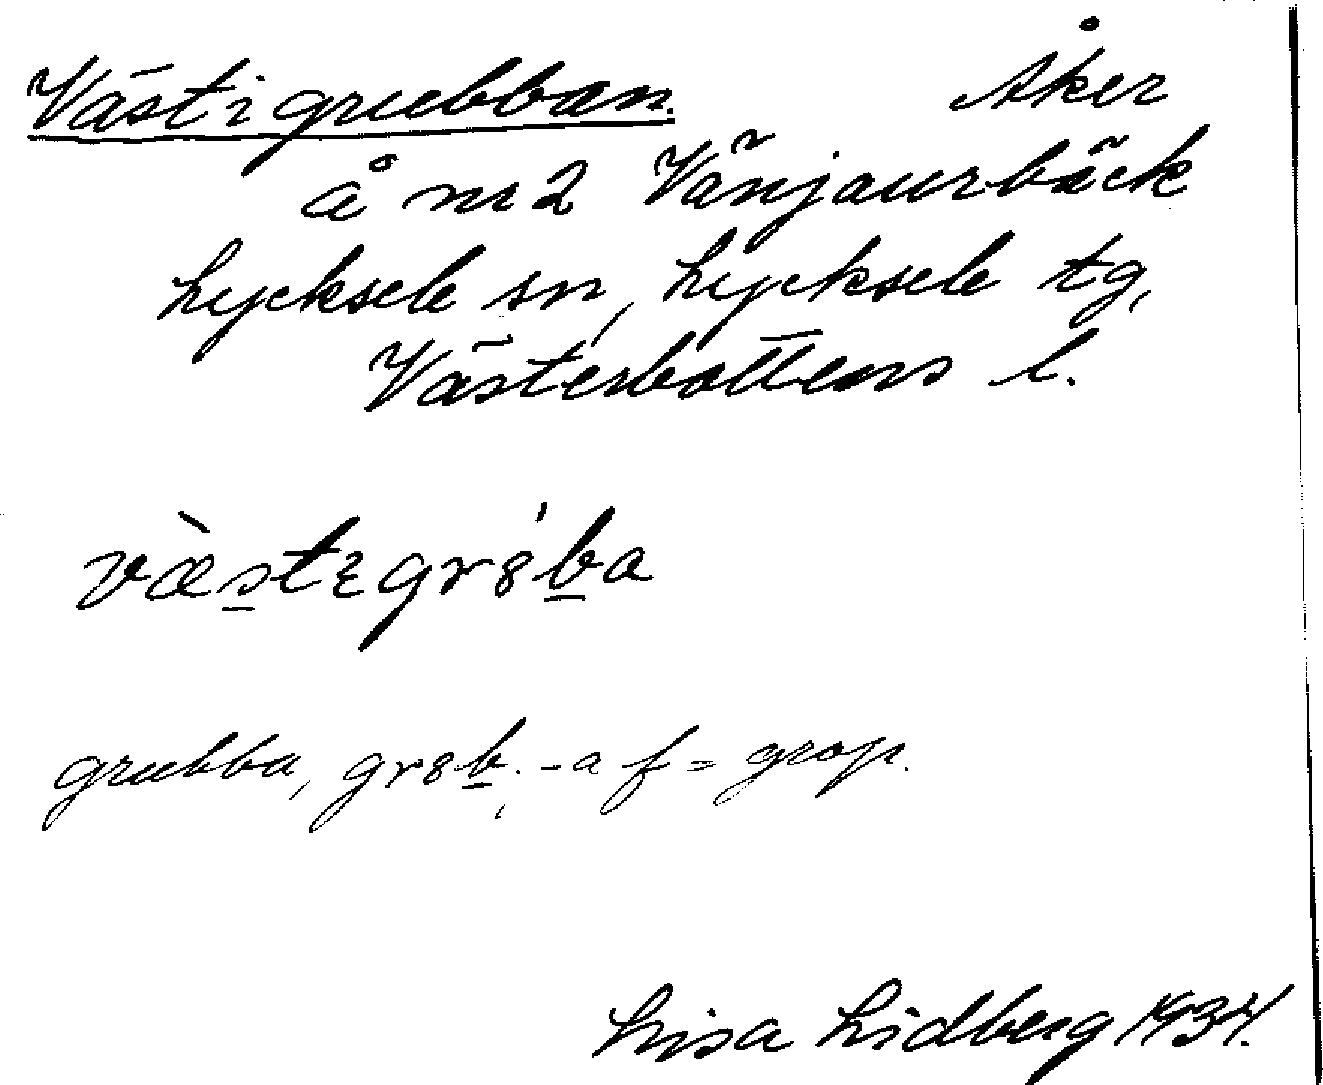 Västi grubban. Åker
å nr 2 Vänjaurbäck
Lycksele sn, Lycksele tg,
Västerbottens l.
væ̀stɛgr8b̲a
grubba, gr8b̲, -a f = grop.
Lisa Lidberg 1934.